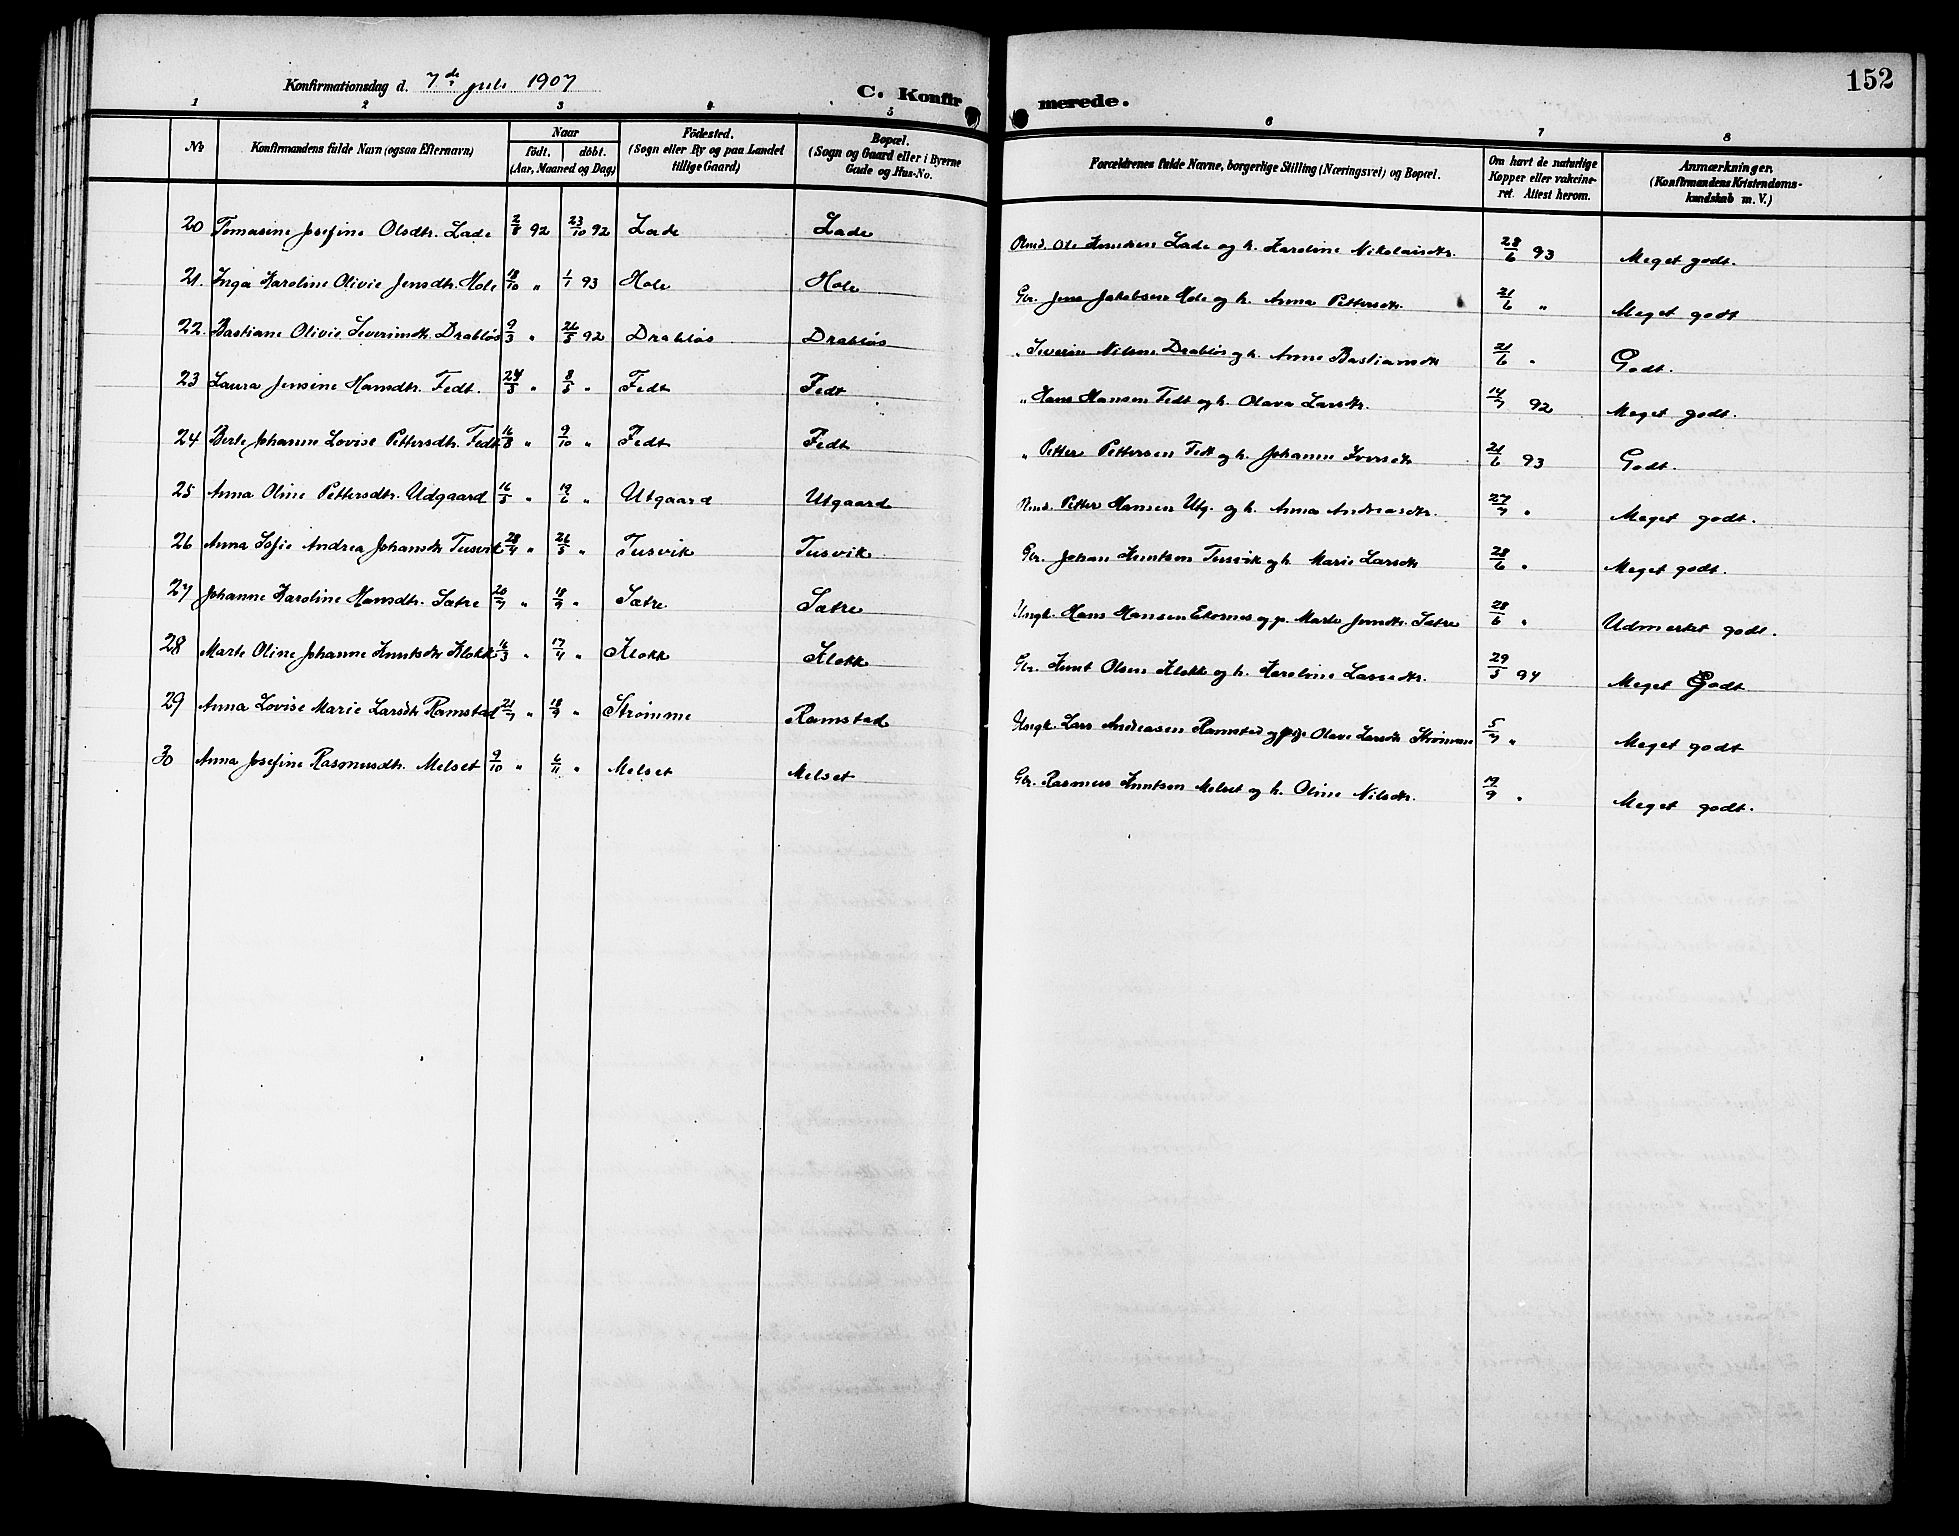 152
Konfirmationsdag d. 7de juli 1907
C. Konfirmerede.
1 2 3 4 5 6 7 8
No
Konfirmandens fulde Navn (ogsaa Efternavn)
Naar
født. døbt.
(Aar, Maaned og Dag)
Fødested.
(Sogn eller By og paa Landet
tillige Gaard)
Bopæl.
(Sogn og Gaard eller i Byerne
Gade og Hus-No.
Forældrenes fulde Navne, borgerlige Stilling (Næringsvei) og Bopæl.
Om havt de naturlige
Kopper eller vakcine-
ret. Attest herom.
Anmærkninger.
(Konfirmandens Kristendoms-
kundskab m. V.)
20 Tomasine Josefine Olsdtr. Lade 2/8 92 23/10 92 Lade Lade Ole Knudsen Lade og h. Karoline Nikolaisdtr. 28/6 93 Meget godt.
21. Inga Karoline Olivie Jensdtr. Hole 18/10 " 1/1 93 Hole Hole Gbr. Jens Jakobsen Hole og h. Anna Pettersdtr. 21/6 " Meget godt
22. Bastiane Olivie Severinsdtr. Drabløs 9/3 " 26/5 92 Drabløs Drabløs " Severin Nilsen Drabløs og h. Anne Bastiansdtr 21/6 " Godt.
23 Laura Jensine Hansdtr. Fedt. 24/3 " 8/5 " Fedt Fedt " Hans Hansen Fedt og h. Olava Larsdtr. 14/7 92 Meget godt.
24 Berte Johanne Lovise Pettersdtr. Fedt 16/8 " 9/10 " Fedt Fedt " Petter Pettersen Fedt og h. Johanne Iversdtr 21/6 93 Godt.
25 Anna Oline Pettersdtr. Udgaard 16/5 " 19/6 " Utgaard Utgaard Petter Hansen Utg. og h. Anna Andreasdtr. 27/7 " Meget godt.
26 Anna Sofie Andrea Johansdtr Tusvik 28/4 " 26/5 " Tusvik Tusvik Gbr. Johan Knutsen Tusvik og h Marie Larsdtr 28/6 " Meget godt.
27 Johanne Karoline Hansdtr. Sætre 20/7 " 18/9 " Sætre Sætre Ungk. Hans Hansen Ekornes og p. Marte Jensdtr. Sætre 28/6 " Udmerket godt.
28 Marte Oline Johanne Knutsdtr Klokk 16/3 " 17/4 " Klokk Klokk Gbr. Knut Olsen Klokk og h. Karoline Larsdtr. 29/5 94 Meget Godt
29 Anna Lovise Marie Larsdtr Ramstad 21/7 " 18/9 " Strømme Ramstad Ungk. Lars Andreasen Ramstad og pige Olave Larsdtr Strømme 5/7 " Meget godt
30 Anna Josefine Rasmusdtr. Melset 9/10 " 6/11 " Melset Melset Gbr. Rasmus Knutsen Melset og h. Oline Nilsdtr. 19/9 " Meget godt.